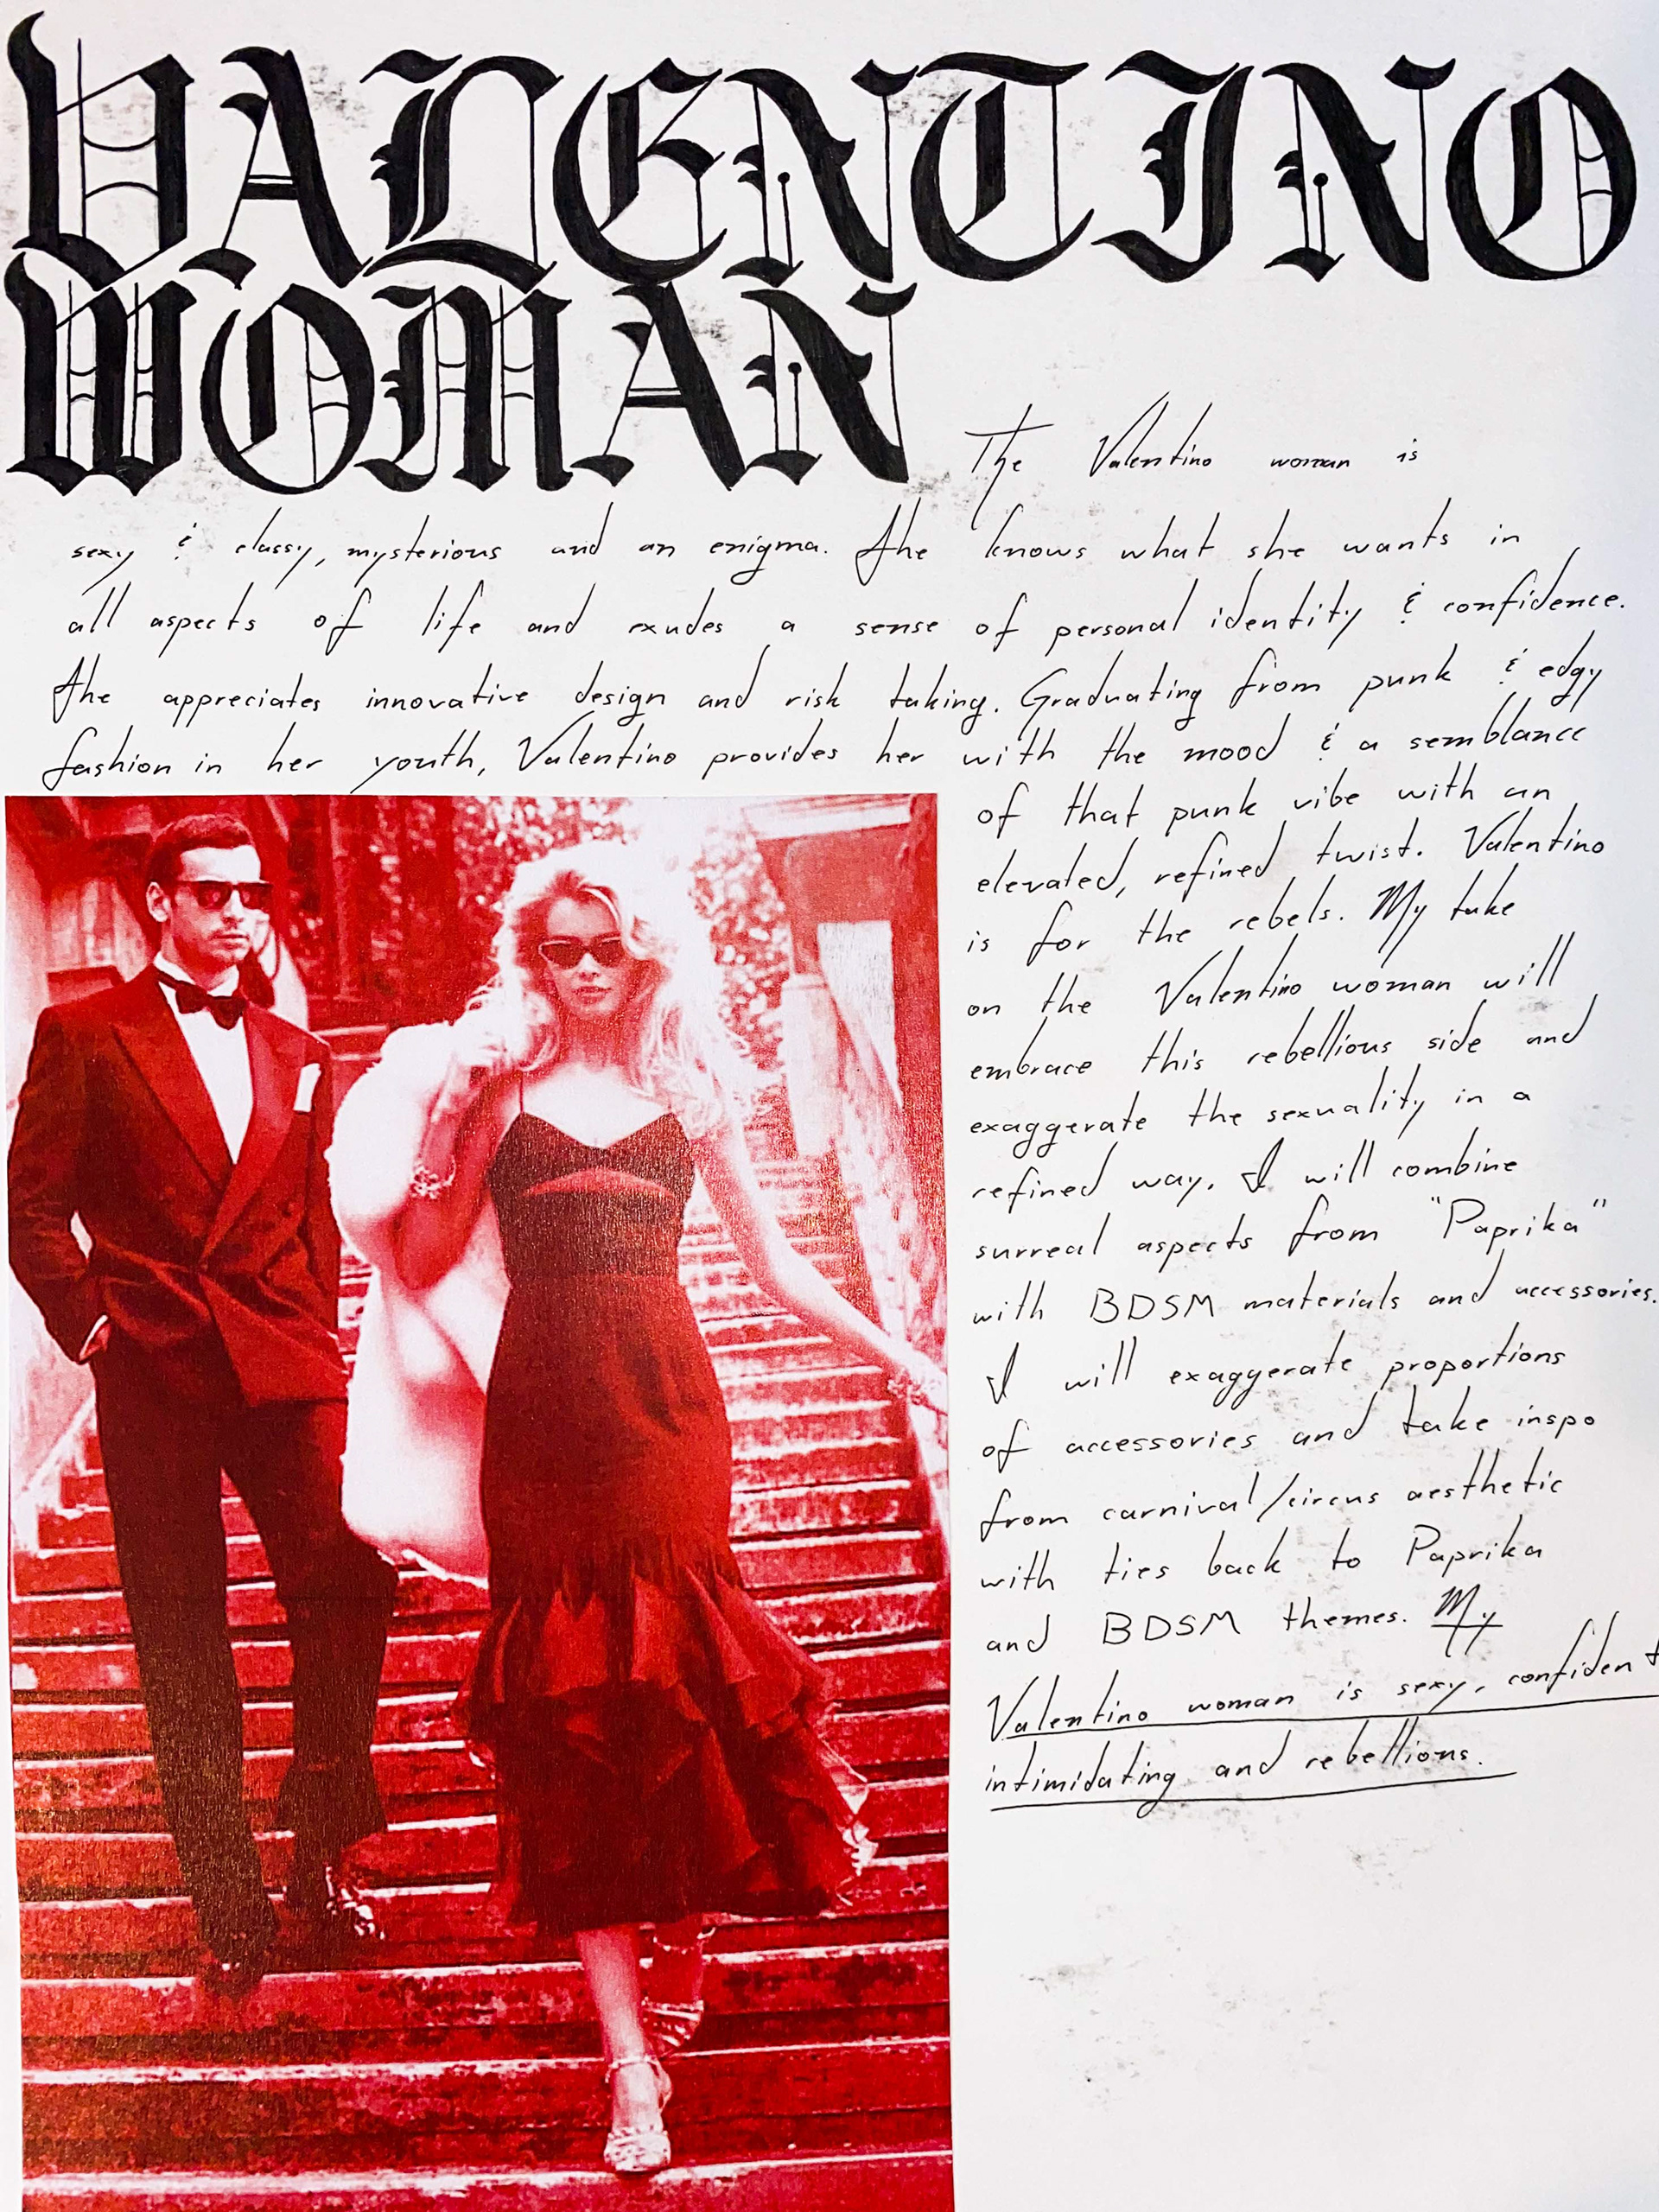 VALENTINO
WOMAN
The Valentino woman is
sexy & classy, mysterious and an enigma. She knows what she wants in
all aspects of life and exudes a sense of personal identity & confidence.
She appreciates innovative design and risk taking. Graduating from punk & edgy
fashion in her youth, Valentino provides her with the mood & a semblance
of that punk vibe with an
elevated, refined twist. Valentino
is for the rebels. My take
on the Valentino woman will
embrace this rebellious side and
exaggerate the sexuality in a
refined way. I will combine
surreal aspects from "Paprika"
with BDSM materials and accessories.
I will exaggerate proportions
of accessories and take inspo
from carnival/circus aesthetic
with ties back to Paprika
and BDSM themes. My
Valentino woman is sexy, confident
intimidating and rebellious.